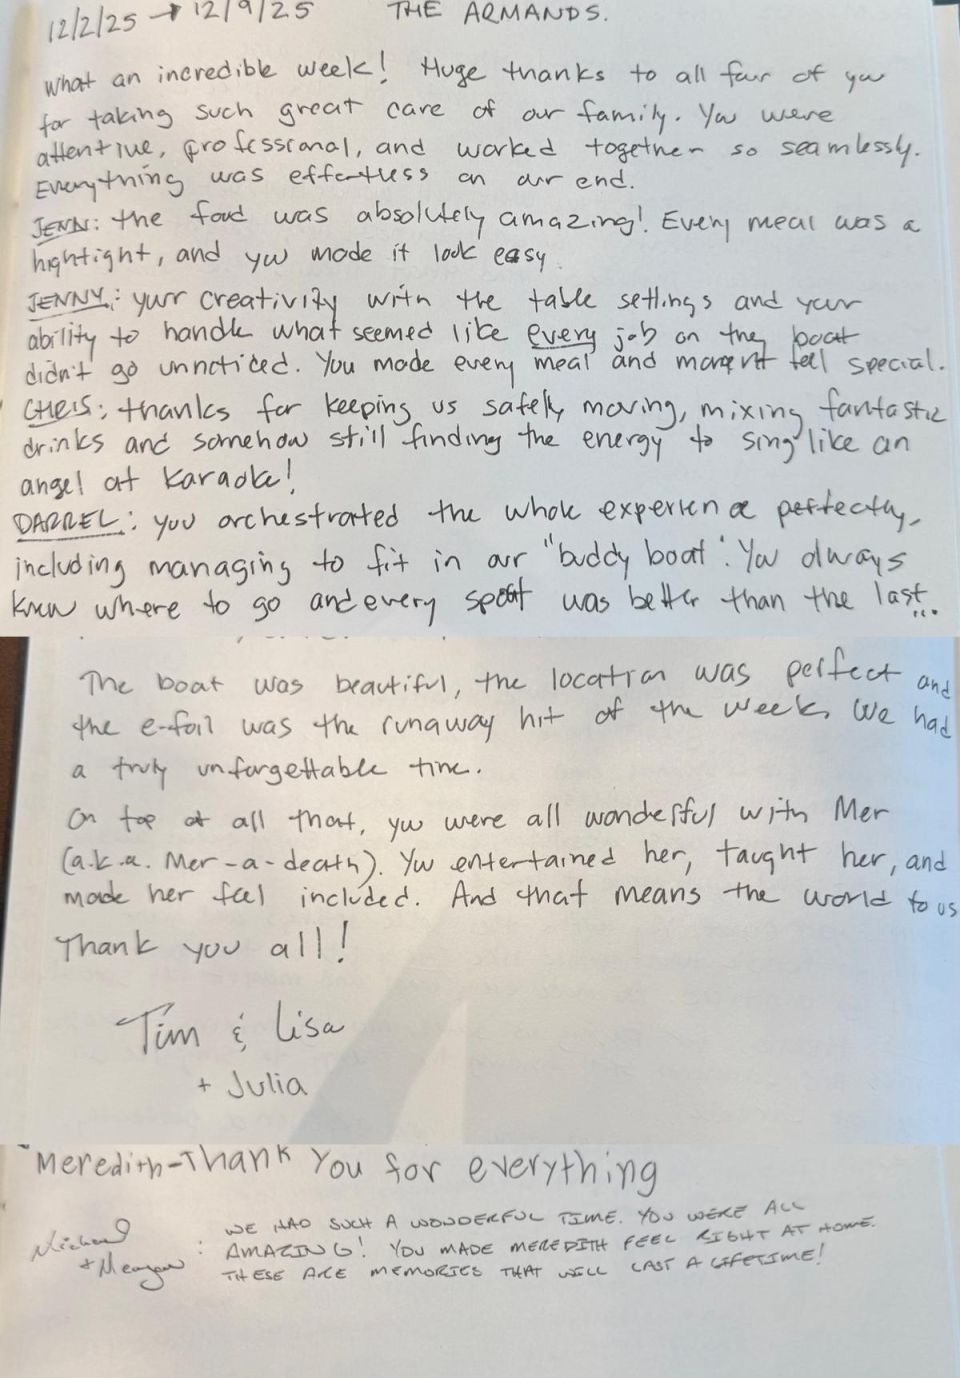 12/2/25 → 12/9/25 THE ARMANDS.
What an incredible week! Huge thanks to all four of you
for taking such great care of our family. You were
attentive, professional, and worked together so seamlessly.
Everything was effortless on our end.
JENN: the food was absolutely amazing! Every meal was a
hightight, and you made it look easy.
JENNY: your creativity with the table settings and your
ability to handle what seemed like every job on the boat
didn't go unnoticed. You made every meal and moment feel special.
CHRIS: thanks for keeping us safely moving, mixing fantastic
drinks and somehow still finding the energy to sing like an
angel at karaoke!
DARREL: you orchestrated the whole experience perfectly,
including managing to fit in our "buddy boat". You always
knew where to go and every spot was better than the last...
The boat was beautiful, the location was perfect and
the e-foil was the runaway hit of the week. We had
a truly unforgettable time.
On top of all that, you were all wonderful with Mer
(a.k.a. Mer-a-death). You entertained her, taught her, and
made her feel included. And that means the world to us
Thank you all!
Tim & Lisa
+ Julia
Meredith-Thank You for everything
Michael + Meagan : WE HAD SUCH A WONDERFUL TIME. YOU WERE ALL
AMAZING! YOU MADE MEREDITH FEEL RIGHT AT HOME.
THESE ARE MEMORIES THAT WILL LAST A LIFETIME!